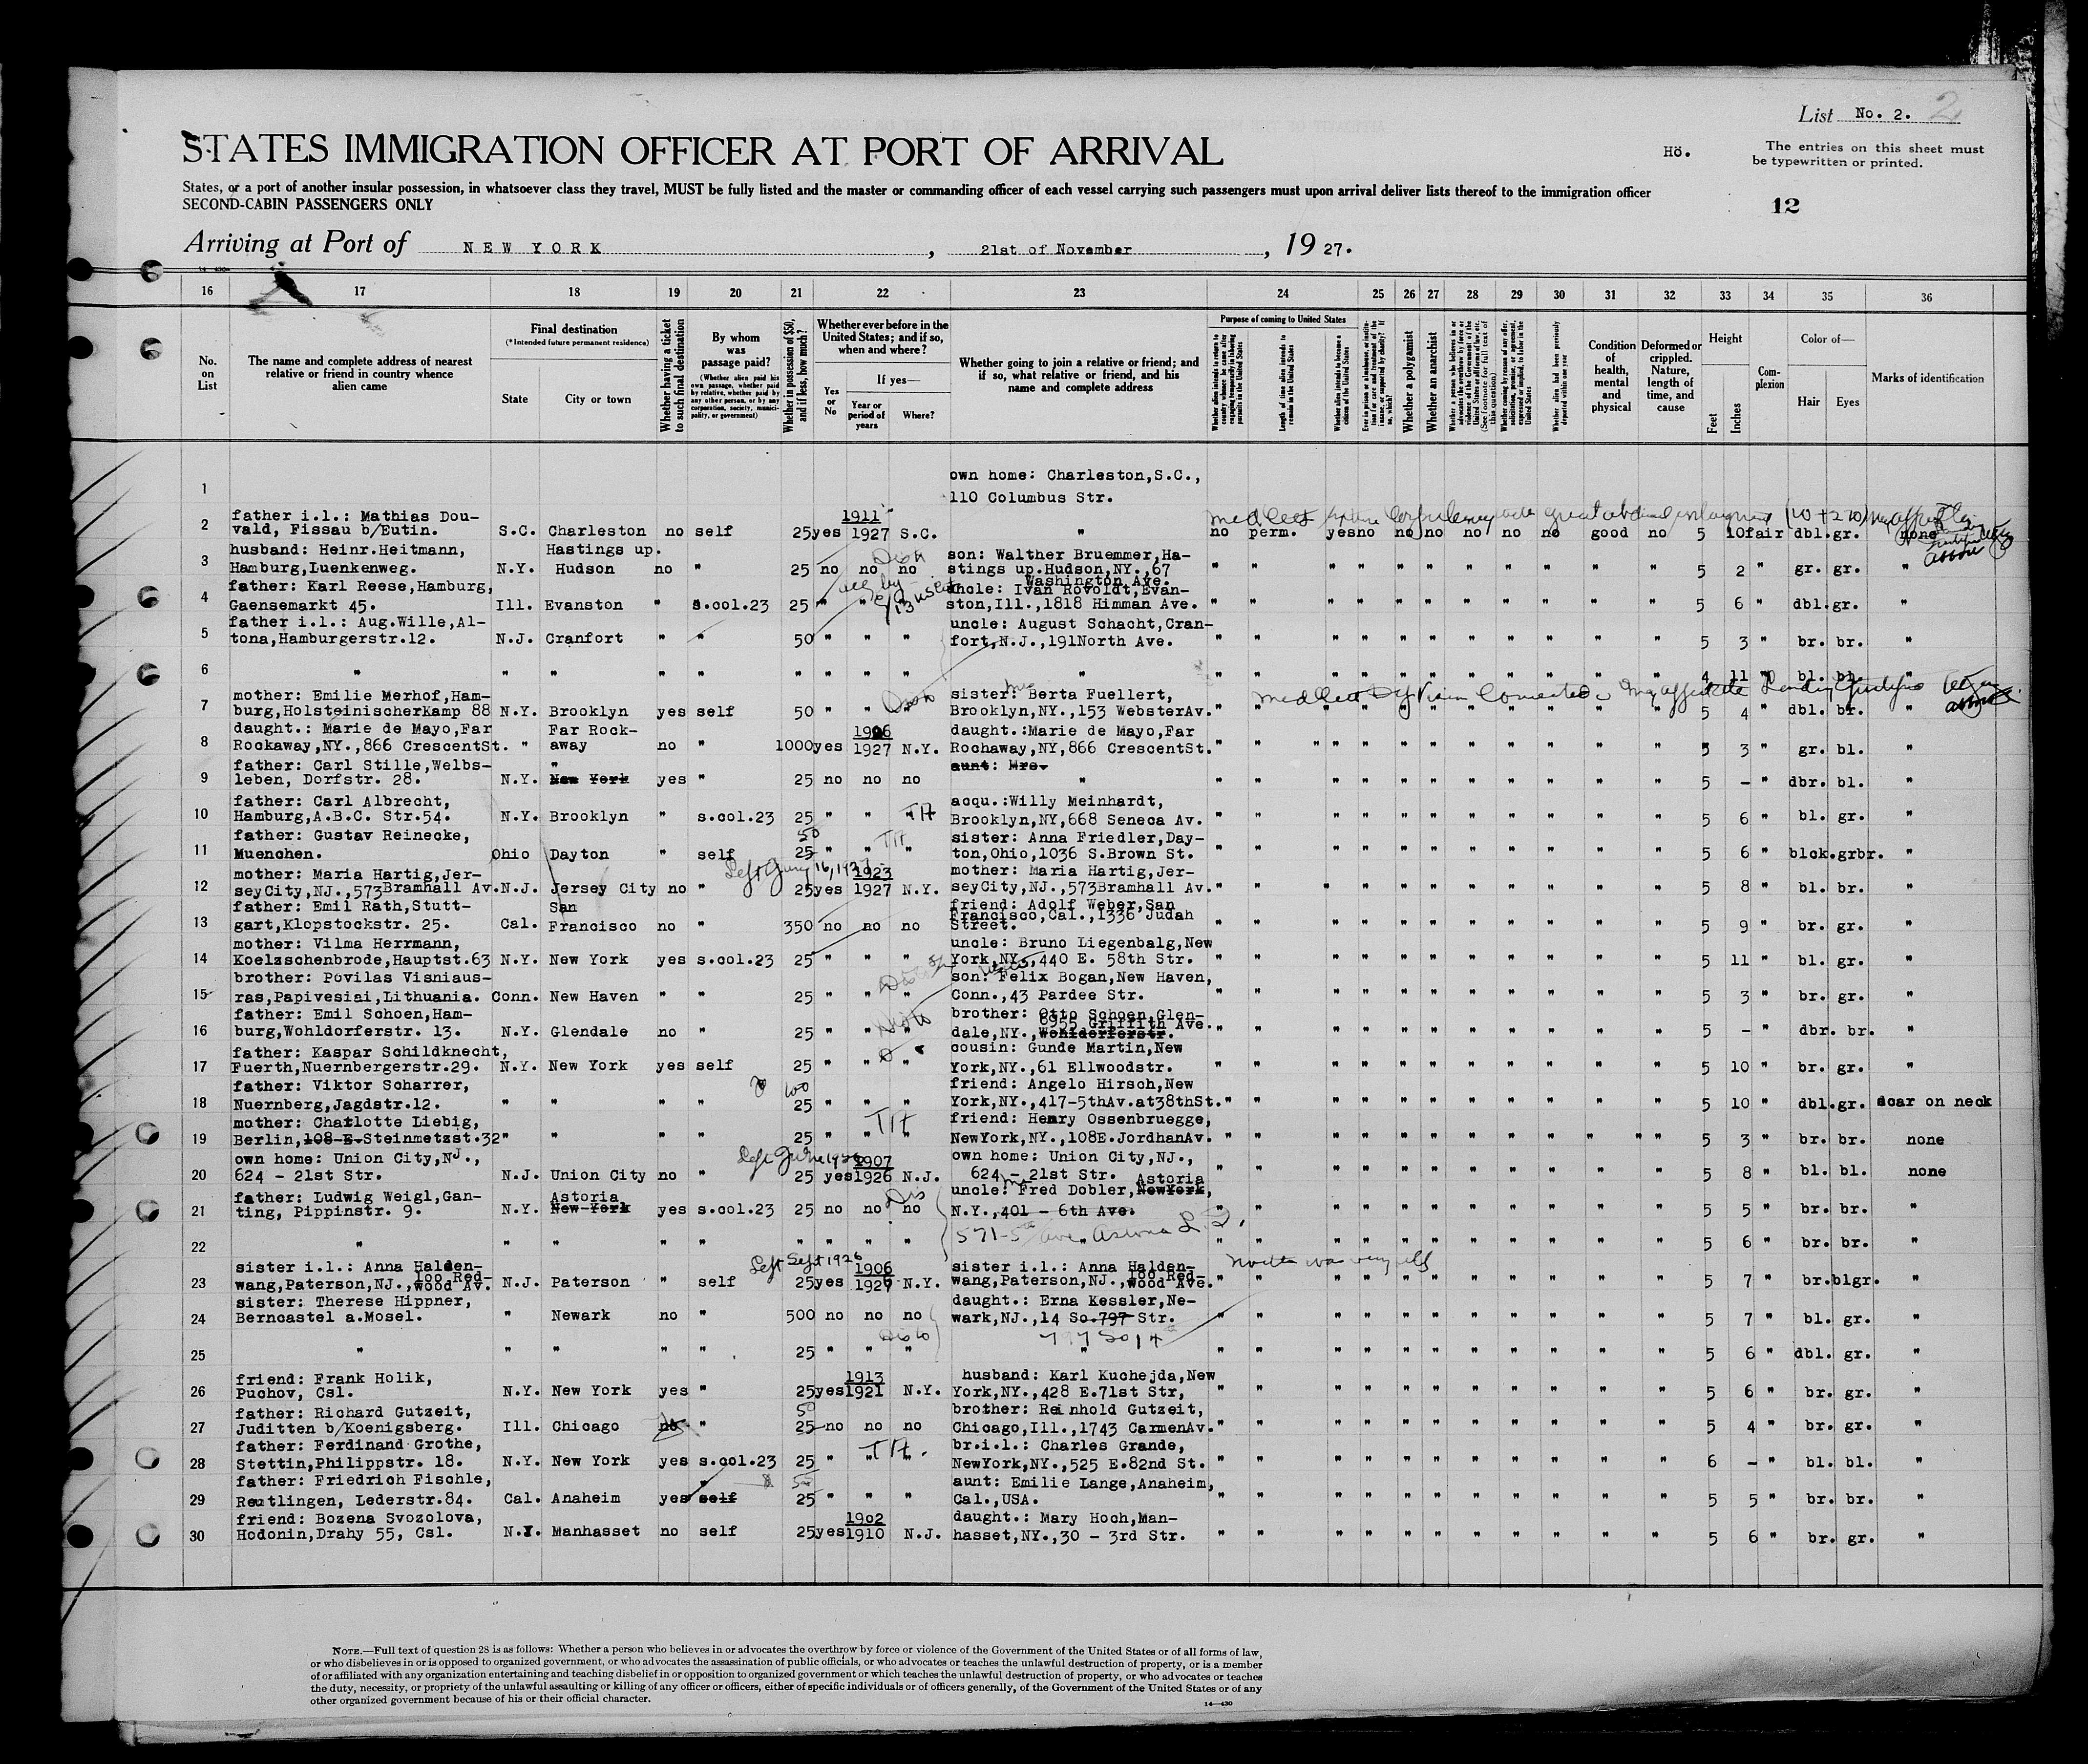 List No. 2. 2
STATES IMMIGRATION OFFICER AT PORT OF ARRIVAL
Hö.
The entries on this sheet must
be typewritten or printed.
States, or a port of another insular possession, in whatsoever class they travel, MUST be fully listed and the master or commanding officer of each vessel carrying such passengers must upon arrival deliver lists thereof to the immigration officer
SECOND-CABIN PASSENGERS ONLY
12
Arriving at Port of NEW YORK, 21st of November, 1927.
16 17 18 19 20 21 22 23 24 25 26 27 28 29 30 31 32 33 34 35 36
No. on List
The name and complete address of nearest relative or friend in country whence alien came
Final destination
(*Intended future permanent residence)
State
City or town
Whether having a ticket to such final destination
By whom was passage paid?
(Whether alien paid his own passage, whether paid by relative, whether paid by any other person, or by any corporation, society, municipality, or government)
Whether in possession of $50, and if less, how much?
Whether ever before in the United States; and if so, when and where?
Yes or No
If yes—
Year or period of years
Where?
Whether going to join a relative or friend; and if so, what relative or friend, and his name and complete address
Purpose of coming to United States
Whether a polygamist
Whether an anarchist
Condition of health, mental and physical
Deformed or crippled. Nature, length of time, and cause
Height
Feet
Inches
Complexion
Color of—
Hair
Eyes
Marks of identification
1 own home: Charleston,S.C.,
110 Columbus Str.
father i.l.: Mathias Dou-
1911
2 vald, Fissau b/Eutin. S.C. Charleston no self 25 yes 1927 S.C. " no perm. yes no no no no no no good no 5 10 fair dbl. gr. none
husband: Heinr.Heitmann, Hastings up. son: Walther Bruemmer,Ha-
3 Hamburg,Luenkenweg. N.Y. Hudson no " 25 no no no stings up.Hudson,NY.,67 5 2 " gr. gr. "
Washington Ave.
father: Karl Reese,Hamburg, uncle: Ivan Rovoldt,Evan-
4 Gaensemarkt 45. Ill. Evanston " s.col.23 25 " " " ston,Ill.,1818 Himman Ave. 5 6 " dbl. gr. "
father i.l.: Aug.Wille,Al- uncle: August Schacht,Cran-
5 tona,Hamburgerstr.12. N.J. Cranfort " " 50 " " " fort,N.J.,191North Ave. 5 3 " br. br. "
6 " " " " " " " " 4 11 " bl. bl. "
mother: Emilie Merhof,Ham- sister: Berta Fuellert,
7 burg,HolsteinischerKamp 88 N.Y. Brooklyn yes self 50 " " " Brooklyn,NY.,153 WebsterAv. 5 4 " dbl. br. "
daught.: Marie de Mayo,Far Far Rock- 1906 daught.:Marie de Mayo,Far
8 Rockaway,NY.,866 CrescentSt. " away no " 1000 yes 1927 N.Y. Rochaway,NY,866 CrescentSt. 5 3 " gr. bl. "
father: Carl Stille,Welbs- " aunt: Mrs.
9 leben, Dorfstr. 28. N.Y. New York yes " 25 no no no " 5 - " dbr. bl. "
father: Carl Albrecht, acqu.:Willy Meinhardt,
10 Hamburg,A.B.C. Str.54. N.Y. Brooklyn " s.col.23 25 " " " Brooklyn,NY,668 Seneca Av. 5 6 " bl. gr. "
father: Gustav Reinecke, 50 sister: Anna Friedler,Day-
11 Muenchen. Ohio Dayton " self 25 " " " ton,Ohio,1036 S.Brown St. 5 6 " blck. grbr. "
mother: Maria Hartig,Jer- 1923 mother: Maria Hartig,Jer-
12 seyCity,NJ.,573Bramhall Av. N.J. Jersey City no " 25 yes 1927 N.Y. seyCity,NJ.,573Bramhall Av. 5 8 " bl. br. "
father: Emil Rath,Stutt- San friend: Adolf Weber,San
13 gart,Klopstockstr. 25. Cal. Francisco no " 350 no no no Francisco,Cal.,1336 Judah 5 9 " br. gr. "
Street.
mother: Vilma Herrmann, uncle: Bruno Liegenbalg,New
14 Koelzschenbrode,Hauptst.63 N.Y. New York yes s.col.23 25 " " " York,NY.,440 E. 58th Str. 5 11 " bl. gr. "
brother: Povilas Visniaus- son: Felix Bogan,New Haven,
15 ras,Papivesiai,Lithuania. Conn. New Haven " " 25 " " " Conn.,43 Pardee Str. 5 3 " br. gr. "
father: Emil Schoen,Ham- brother: Otto Schoen,Glen-
6955 Griffith Ave.
16 burg,Wohldorferstr. 13. N.Y. Glendale no " 25 " " " dale,NY.,Wohldorferstr. 5 - " dbr. br. "
father: Kaspar Schildknecht, cousin: Gunde Martin,New
17 Fuerth,Nuernbergerstr.29. N.Y. New York yes self 25 " " " York,NY.,61 Ellwoodstr. 5 10 " br. gr. "
father: Viktor Scharrer, friend: Angelo Hirsch,New
18 Nuernberg,Jagdstr.12. " " " " 25 " " " York,NY.,417-5thAv.at38thSt. 5 10 " dbl. gr. scar on neck
mother: Charlotte Liebig, friend: Henry Ossenbruegge,
19 Berlin,108 E.Steinmetzst.32 " " " " 25 " " " NewYork,NY.,108E.JordhanAv. 5 3 " br. br. none
own home: Union City,NJ., 1907 own home: Union City,NJ.,
20 624 - 21st Str. N.J. Union City no " 25 yes 1926 N.J. 624 - 21st Str. 5 8 " bl. bl. none
father: Ludwig Weigl,Gan- Astoria uncle: Fred Dobler,NewYork, Astoria
21 ting, Pippinstr. 9. N.Y. New York yes s.col.23 25 no no no N.Y.,401 - 6th Ave. 5 5 " br. br. "
22 " " " " " " " " " 5 6 " br. br. "
sister i.l.: Anna Halden- Left Sept 1926 1906 sister i.l.: Anna Halden-
23 wang,Paterson,NJ.,100 Red-wood Av. N.J. Paterson " self 25 yes 1926 N.Y. wang,Paterson,NJ.,100 Red-wood Ave. 5 7 " br. blgr. "
sister: Therese Hippner, daught.: Erna Kessler,Ne-
24 Berncastel a.Mosel. " Newark no " 500 no no no wark,NJ.,14 So.797 Str. 5 7 " bl. gr. "
797 So 14
25 " " " " " 25 " " " " 5 6 " dbl. gr. "
friend: Frank Holik, 1913 husband: Karl Kuchejda,New
26 Puchov, Csl. N.Y. New York yes " 25 yes 1921 N.Y. York,NY.,428 E.71st Str, 5 6 " br. gr. "
father: Richard Gutzeit, 50 brother: Reinhold Gutzeit,
27 Juditten b/Koenigsberg. Ill. Chicago no " 25 no no no Chicago,Ill.,1743 CarmenAv. 5 4 " br. gr. "
father: Ferdinand Grothe, br.i.l.: Charles Grande,
28 Stettin,Philippstr. 18. N.Y. New York yes s.col.23 25 " " " NewYork,NY.,525 E.82nd St. 6 - " bl. bl. "
father: Friedrich Fischle, " aunt: Emilie Lange,Anaheim,
29 Reutlingen, Lederstr.84. Cal. Anaheim yes self 25 " " " Cal.,USA. 5 5 " br. br. "
friend: Bozena Svozolova, 1902 daught.: Mary Hoch,Man-
30 Hodonin,Drahy 55, Csl. N.Y. Manhasset no self 25 yes 1910 N.J. hasset,NY.,30 - 3rd Str. 5 6 " br. gr. "
NOTE.—Full text of question 28 is as follows: Whether a person who believes in or advocates the overthrow by force or violence of the Government of the United States or of all forms of law,
or who disbelieves in or is opposed to organized government, or who advocates the assassination of public officials, or who advocates or teaches the unlawful destruction of property, or is a member
of or affiliated with any organization entertaining and teaching disbelief in or opposition to organized government or which teaches the unlawful destruction of property, or who advocates or teaches
the duty, necessity, or propriety of the unlawful assaulting or killing of any officer or officers, either of specific individuals or of officers generally, of the Government of the United States or of any
other organized government because of his or their official character.
14—430